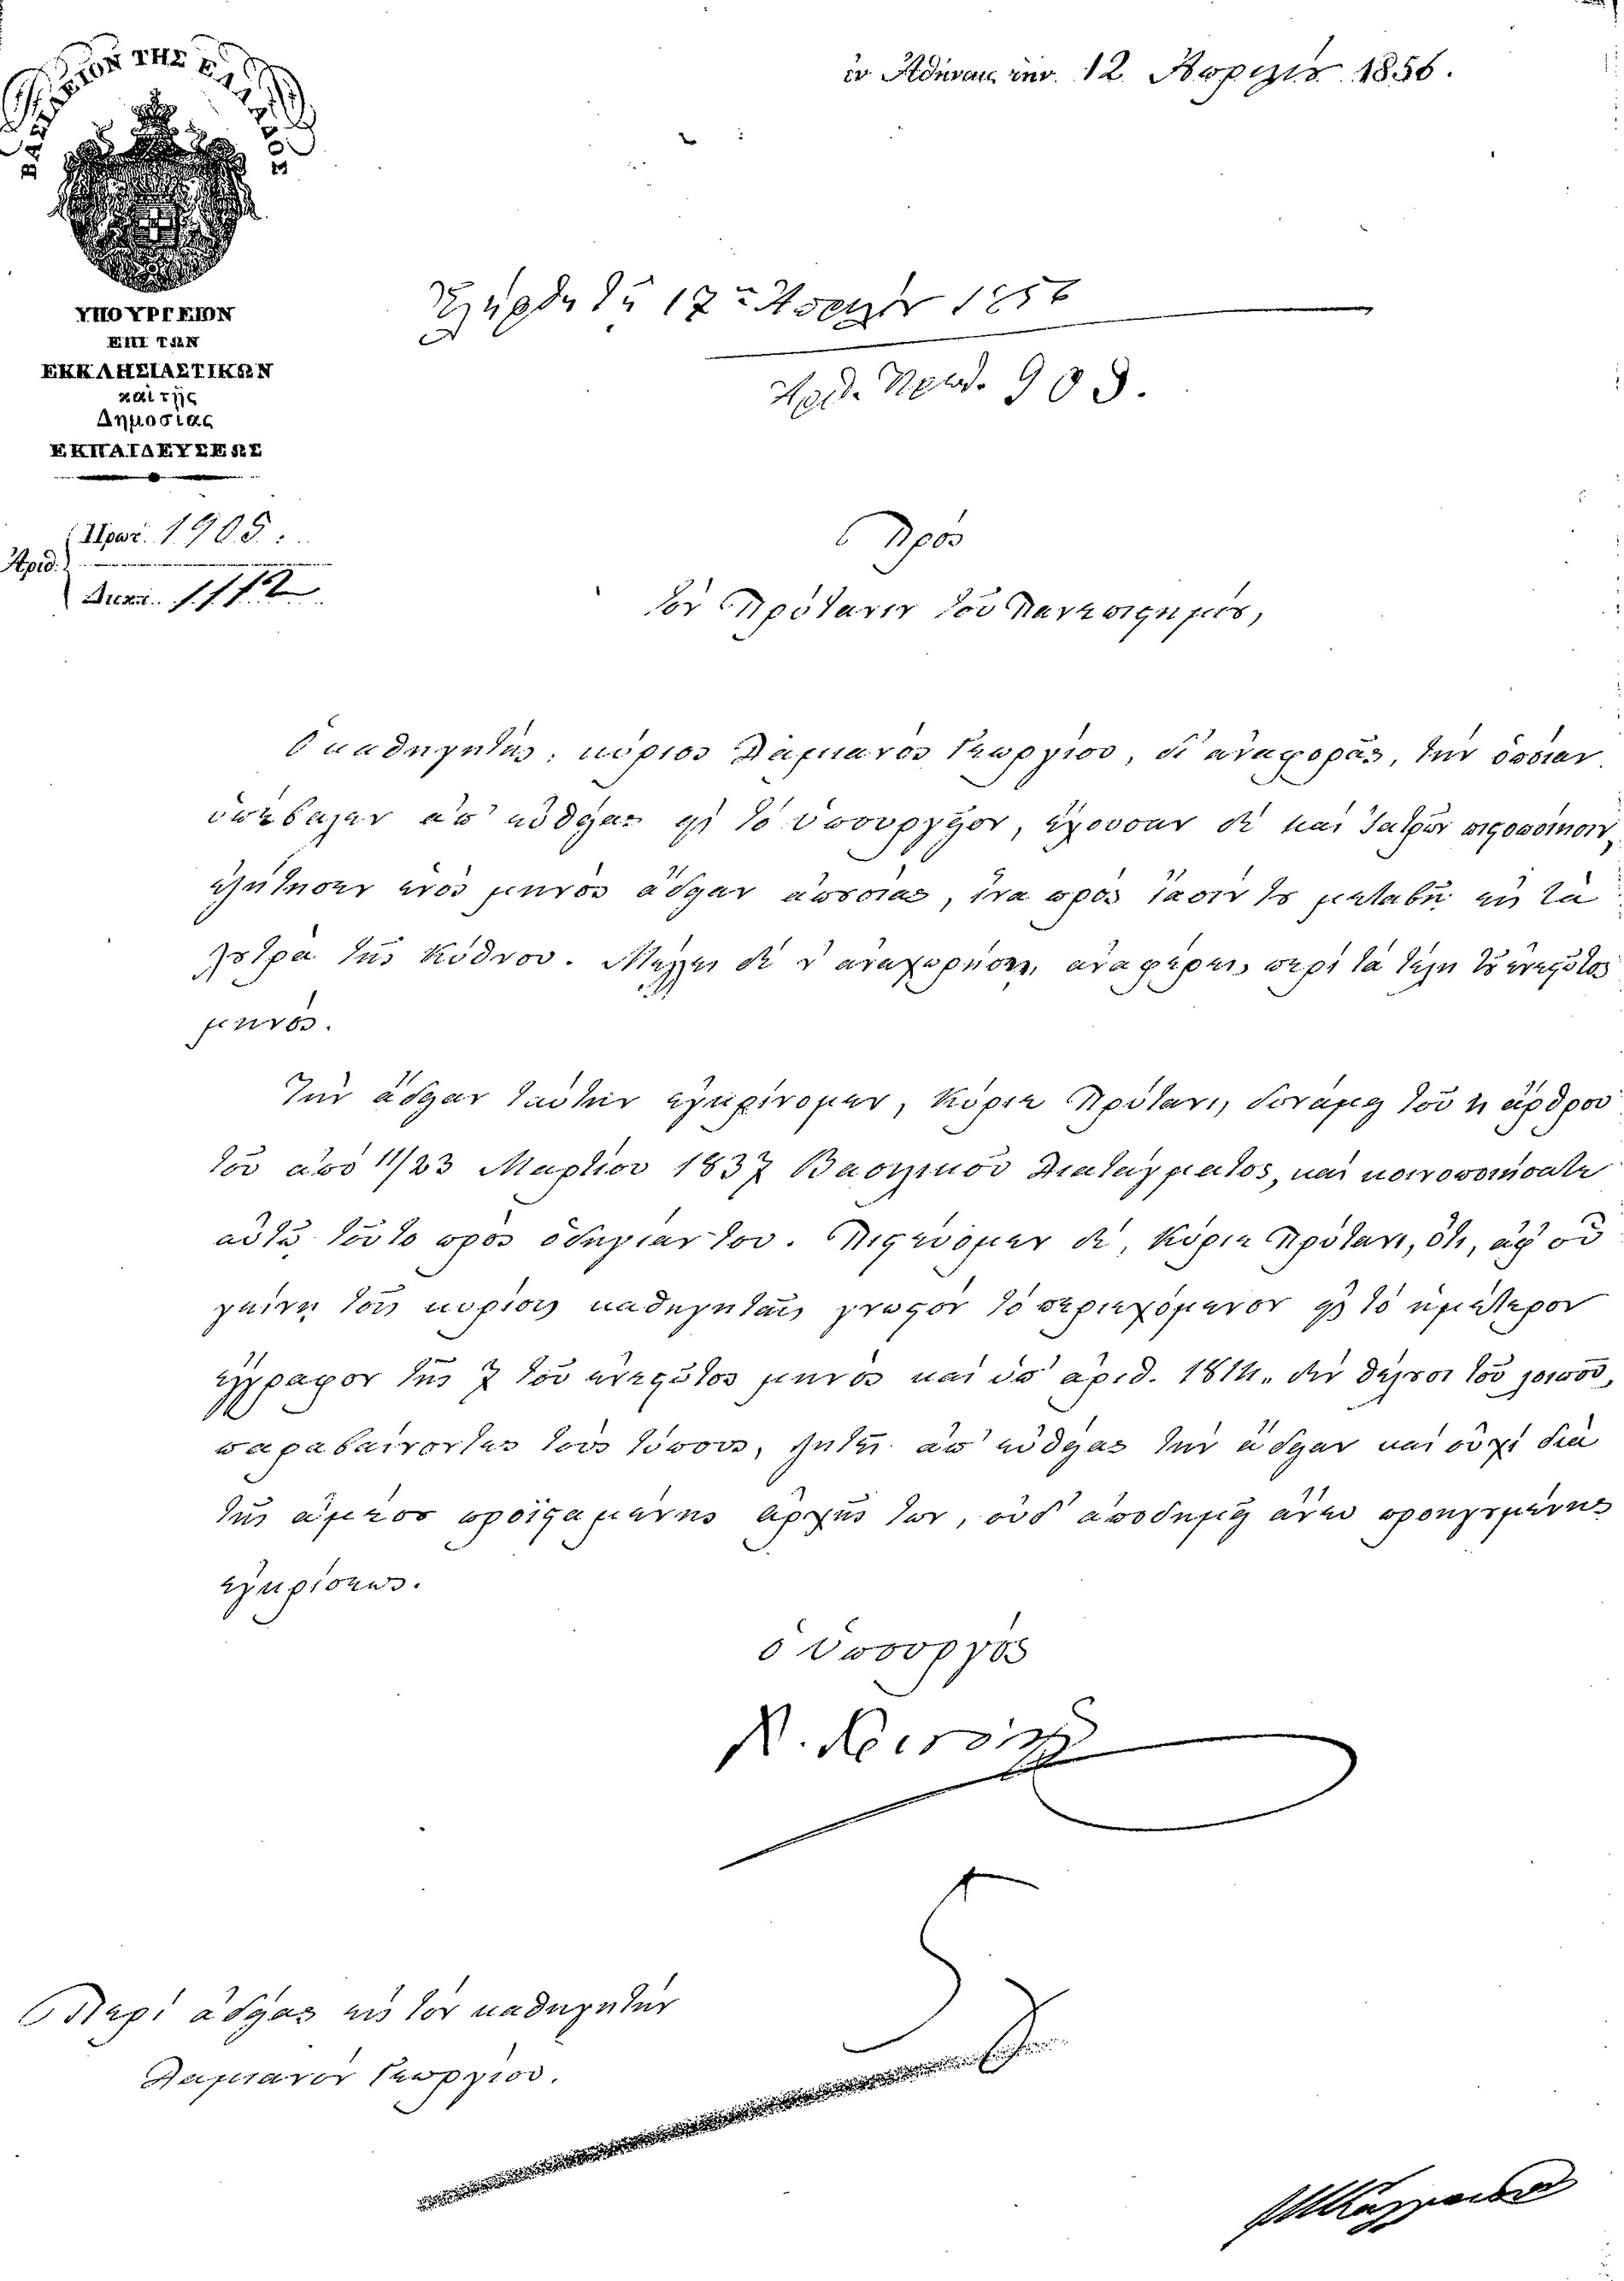 ΒΑΣΙΛΕΙΟΝ ΤΗΣ ΕΛΛΑΔΟΣ
ΥΠΟΥΡΓΕΙΟΝ
ΕΠΙ ΤΩΝ
ΕΚΚΛΗΣΙΑΣΤΙΚΩΝ
καὶ τῆς
Δημοσίας
ΕΚΠΑΙΔΕΥΣΕΩΣ
Ἀριθ. Πρωτ. 1905.
Διεκπ. 1112
ἐν Ἀθήναις τὴν 12 Ἀπριλίου 1856.
Ἐλήφθη τῇ 17ῃ Ἀπριλίου 1856
Ἀριθ. Πρωτ. 903.
Πρὸς
τὸν Πρύτανιν τοῦ Πανεπιστημίου,
Ὁ καθηγητὴς, κύριος Δαμιανὸς Γεωργίου, δι' ἀναφορᾶς, τὴν ὁποίαν
ὑπέβαλεν ἀπ' εὐθείας εἰς τὸ ὑπουργεῖον, ἔχουσαν δὲ καὶ ἰατρῶν πιστοποίησιν,
ἐζήτησεν ἑνὸς μηνὸς ἄδειαν ἀπουσίας, ἵνα πρὸς ἴασίν του μεταβῇ εἰς τὰ
λουτρὰ τῆς Κύθνου. Μέλλει δὲ ν' ἀναχωρήσῃ, ἀναφέρει, περὶ τὰ τέλη τοῦ ἐνεστῶτος
μηνός.
Τὴν ἄδειαν ταύτην ἐγκρίνομεν, Κύριε Πρύτανι, δυνάμει τοῦ η ἄρθρου
τοῦ ἀπὸ 11/23 Μαρτίου 1837 Βασιλικοῦ Διατάγματος, καὶ κοινοποιήσατε
αὐτῷ τοῦτο πρὸς ὁδηγίαν του. Πιστεύομεν δὲ, Κύριε Πρύτανι, ὅτι, ἀφ' οὗ
γείνῃ τοῖς κυρίοις καθηγηταῖς γνωστὸν τὸ περιεχόμενον εἰς τὸ ἡμέτερον
ἔγγραφον τῆς 7 τοῦ ἐνεστῶτος μηνὸς καὶ ὑπ' ἀριθ. 1814. δὲν θέλουσι τοῦ λοιποῦ,
παραβαίνοντες τοὺς τύπους, ζητεῖ ἀπ' εὐθείας τὴν ἄδειαν καὶ οὐχὶ διὰ
τῆς ἀμέσως προϊσταμένης ἀρχῆς των, οὐδ' ἀποδημεῖ ἄνευ προηγουμένης
ἐγκρίσεως.
ὁ Ὑπουργὸς
Περὶ ἀδείας εἰς τὸν καθηγητὴν
Δαμιανὸν Γεωργίου.